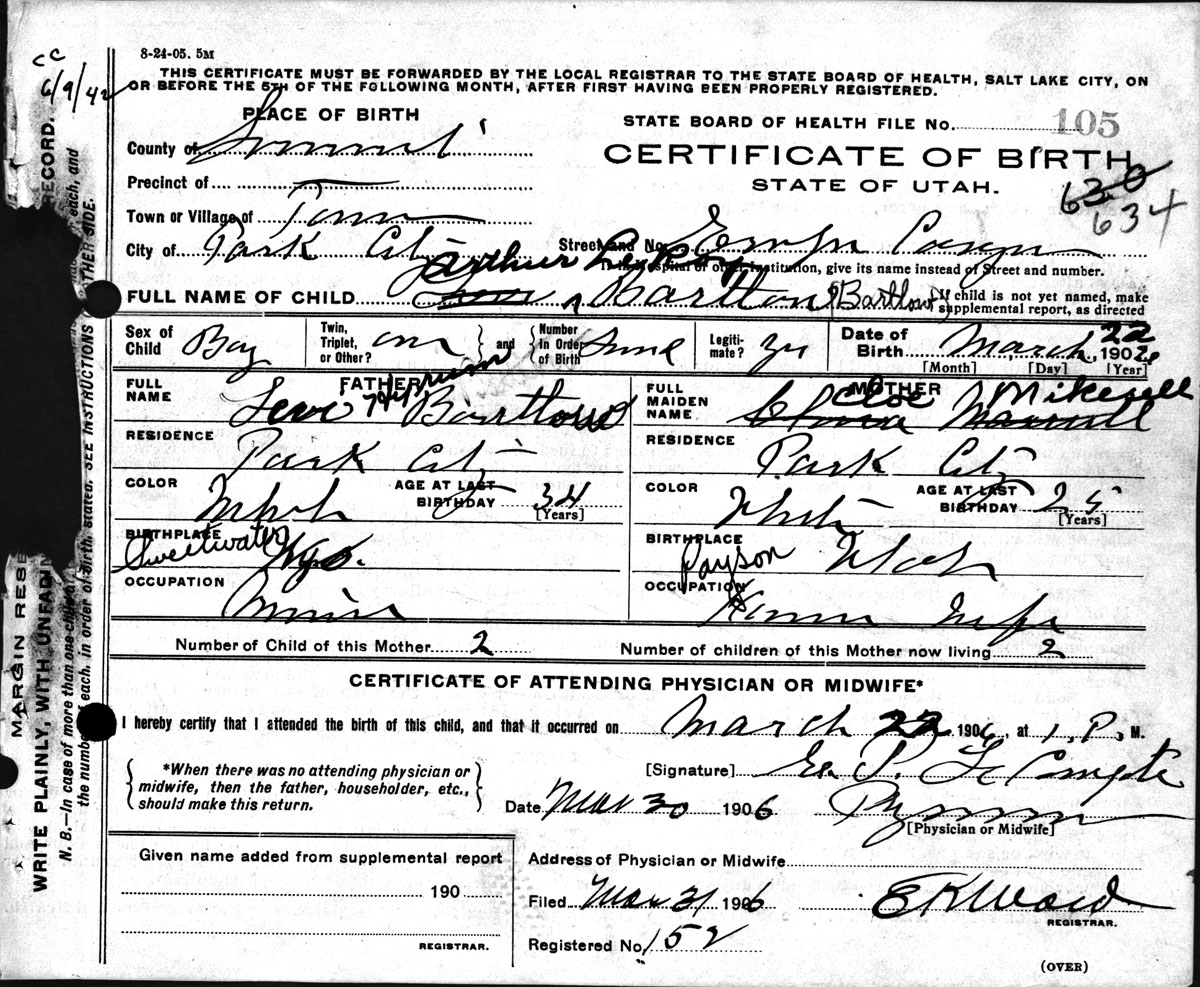 cc
6/9/42
8-24-05. 5M
THIS CERTIFICATE MUST BE FORWARDED BY THE LOCAL REGISTRAR TO THE STATE BOARD OF HEALTH, SALT LAKE CITY, ON
OR BEFORE THE 5TH OF THE FOLLOWING MONTH, AFTER FIRST HAVING BEEN PROPERLY REGISTERED.
PLACE OF BIRTH
STATE BOARD OF HEALTH FILE No. 105
County of Summit
CERTIFICATE OF BIRTH
STATE OF UTAH.
630
634
Precinct of
Town or Village of
City of Park City Street and No.
If in hospital or other institution, give its name instead of Street and number.
Arthur LeRoy
FULL NAME OF CHILD Bartlow (Bartlow)
If child is not yet named, make
supplemental report, as directed
Sex of Child Boy
Twin, Triplet, or Other? and Number In Order of Birth
Legiti- mate?
Date of Birth March 22 1906
[Month] [Day] [Year]
FATHER
FULL NAME Bartlow
MOTHER
FULL MAIDEN NAME Cloe Mikesell
RESIDENCE Park City
RESIDENCE Park City
COLOR White
AGE AT LAST BIRTHDAY 34 [Years]
COLOR White
AGE AT LAST BIRTHDAY 25 [Years]
BIRTHPLACE Sweetwater Wyo.
BIRTHPLACE Payson Utah
OCCUPATION Miner
OCCUPATION House Wife
Number of Child of this Mother 2
Number of children of this Mother now living 2
CERTIFICATE OF ATTENDING PHYSICIAN OR MIDWIFE*
I hereby certify that I attended the birth of this child, and that it occurred on March 22 1906, at 1 P. M.
*When there was no attending physician or
midwife, then the father, householder, etc.,
should make this return.
[Signature] E. P. Le Compte
Date Mar 30 1906
[Physician or Midwife]
Given name added from supplemental report
190
REGISTRAR.
Address of Physician or Midwife
Filed Mar 31 1906 E K Ward
REGISTRAR.
Registered No. 152
(OVER)
MARGIN RESE
RECORD.
WRITE PLAINLY, WITH UNFADIN
N. B.—In case of more than one child
each, and
the number of each, in order of birth, stated. SEE INSTRUCTIONS OTHER SIDE.